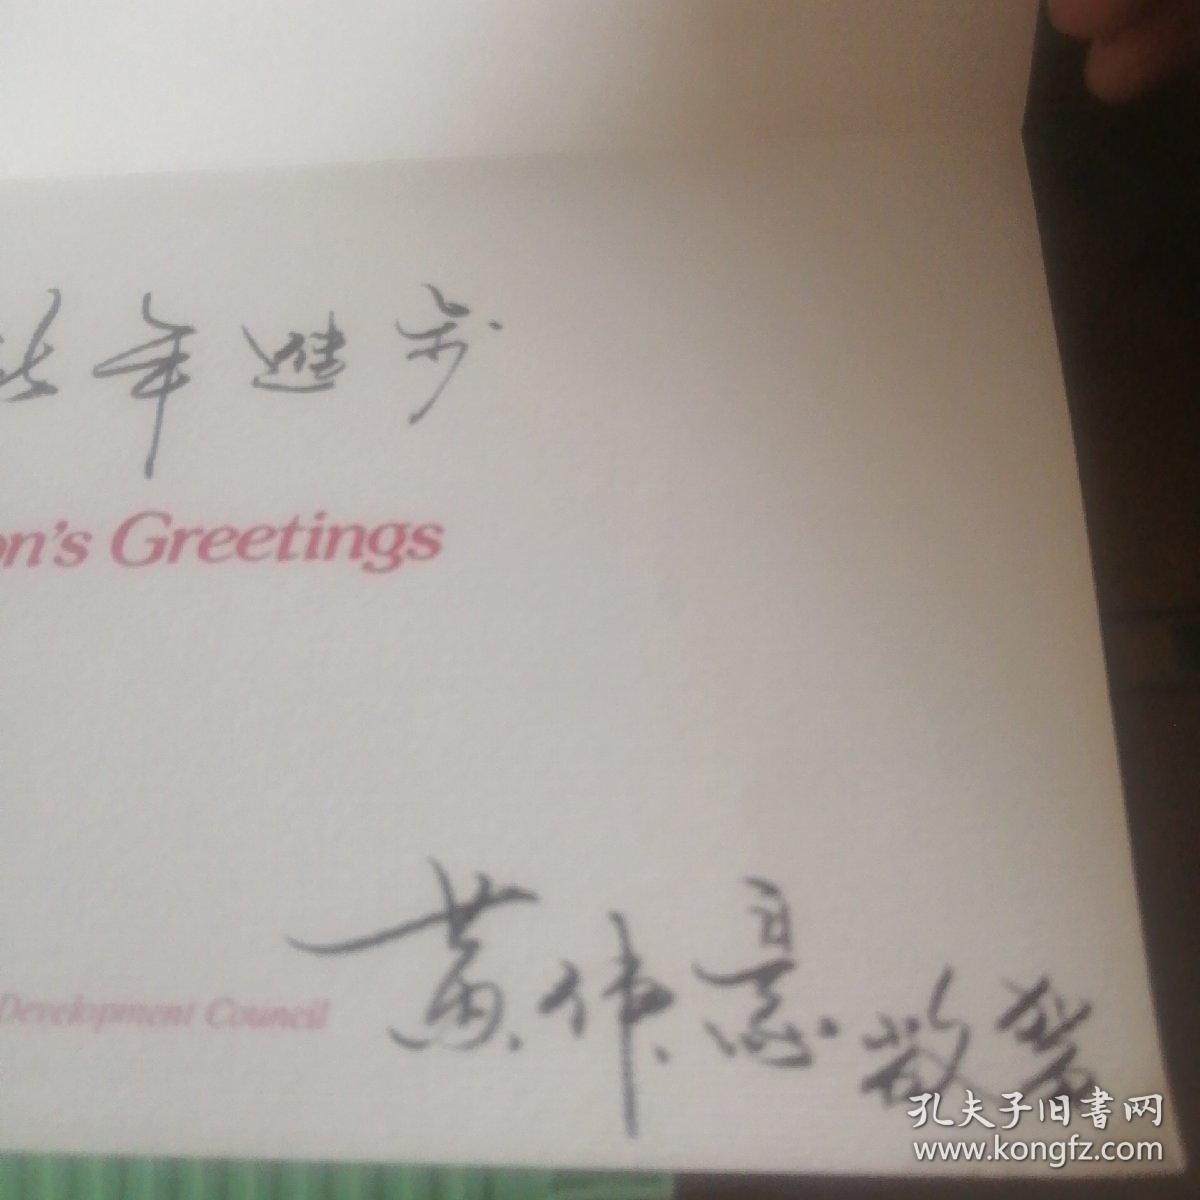 新年進步
on's Greetings
Development Council
黄伟 敬賀
孔夫子旧書网
www.kongfz.com